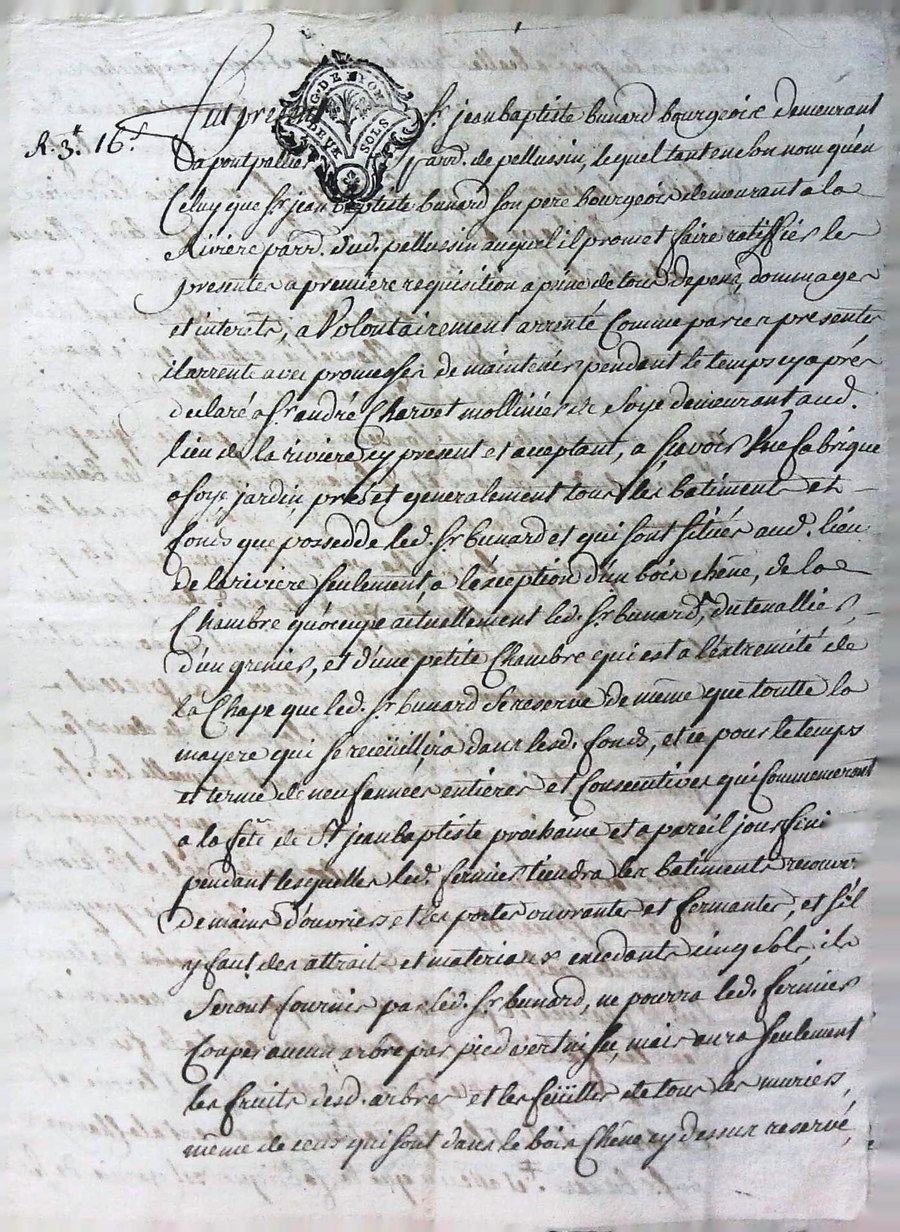 G. DE LYON
DEUX SOLS
R. 3.# 16.s
Fut présent Sr. jean baptiste bunard bourgeois demeurant
Da pont paroisse de pellussin, lequel tant en son nom qu'en
Celuy que Sr. jean baptiste bunard son pere bourgeois demeurant a la
Riviere parr. dud. pellussin auquel il promet faire ratiffier les
presentes a premiere requisition a peine de tous depens, dommages
et interets, a Volontairement arrenté Comme par ces presentes
il arrente avec promesse de maintenir pendant le temps cy après
declaré a Sr. andré Charvet mollinier de Soye demeurant aud.
lieu de la riviere cy present et aceptant, a sçavoir Une fabrique
a soye, jardin, pres et generalement tous les batiments et
fonds que possedde led. Sr. bunard et qui sont situés aud. lieu
de la riviere seulement, a l'exception d'un bois chene, de la
Chambre qu'ocupe actuellement led. Sr. bunard, du tenallier,
d'un grenier, et d'une petite Chambre qui est a l'extremité de
la Chape que led. Sr. bunard Se reserve de même que toutte la
mayere qui se recüeillira dans lesd. fonds, et ce pour le temps
et terme de neuf années entieres et Consecutives qui Commenceront
a la fête de St. jean baptiste prochaine et a pareil jour fini
pendant lesquelles led. fermier tiendra les batiments recouverts
de mains d'ouvriers et les portes ouvrantes et fermantes, et s'il
y faut des attraits et materiaux excedants cinq sols ils
Seront fournis par led. Sr. bunard, ne pourra led. fermier
Couper aucun arbre par pied vert ni sec, mais aura seulement
les fruits desd. arbres et les feüilles de tous les muriers,
même de ceux qui sont dans le bois Chêne cy dessus reservé,